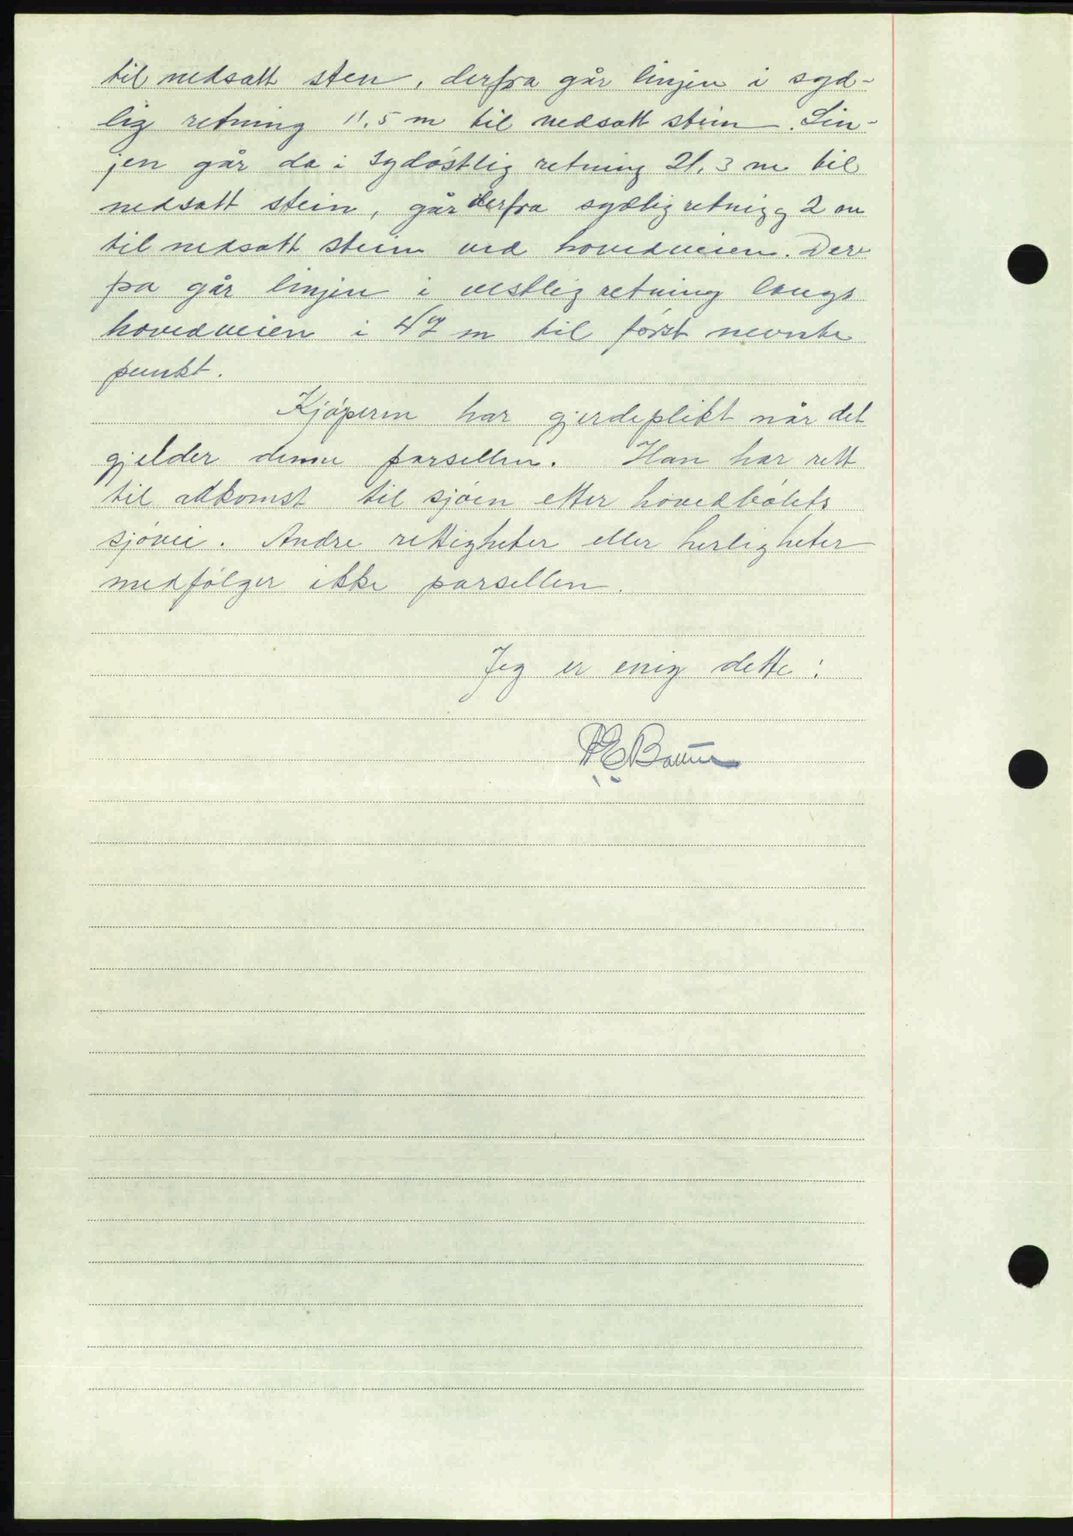 til nedsatt sten, derfra går linjen i syd-
lig retning 11,5 m til nedsatt stein. Lin-
jen går da i sydöstlig retning 21,3 m til
nedsatt stein, går derfra sydlig retnigg 2 m
til nedsatt stein ved hovedveien. Der-
fra går linjen i vestlig retning langs
hovedveien i 47 m til först nevnte
punkt.
Kjöperen har gjerdeplikt når det
gjelder denne parsellen. Han har rett
til adkomst til sjöen etter hovedbölets
sjövei. Andre rettigheter eller herligheter
medfölger ikke parsellen.
Jeg er enig dette: